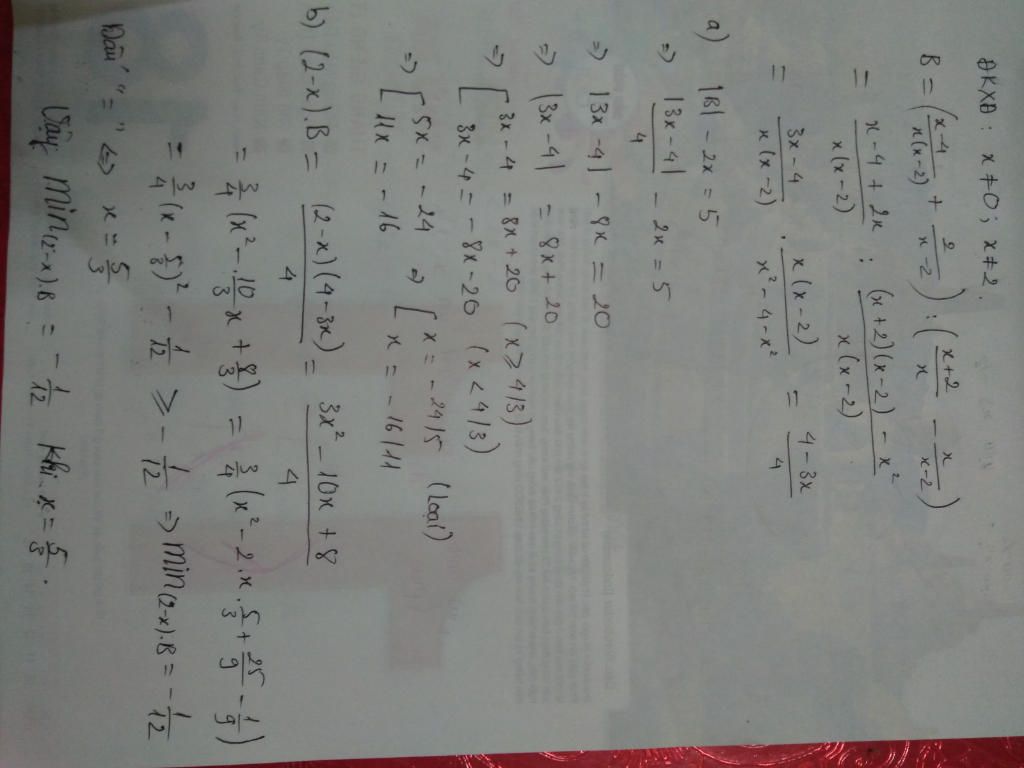 ĐKXĐ: x≠0; x≠2.
B = (x-4/x(x-2) + 2/x-2) : (x+2/x - x/x-2)
= x-4+2x/x(x-2) : (x+2)(x-2) - x²/x(x-2)
= 3x-4/x(x-2) . x(x-2)/x²-4-x² = 4-3x/4
a) |B| - 2x = 5
=> |3x-4|/4 - 2x = 5
=> |3x-4| - 8x = 20
=> |3x-4| = 8x+20
=> [ 3x-4 = 8x+20 (x ⩾ 4/3)
3x-4 = -8x-20 (x < 4/3)
=> [ 5x = -24 => [ x = -24/5 (loại)
11x = -16 x = -16/11
b) (2-x).B = (2-x)(4-3x)/4 = 3x²-10x+8/4
= 3/4 (x² - 10/3 x + 8/3) = 3/4 (x² - 2.x.5/3 + 25/9 - 1/9)
= 3/4 (x - 5/3)² - 1/12 ⩾ -1/12 => Min(2-x).B = -1/12
Dấu "=" <=> x = 5/3
Vậy Min(2-x).B = -1/12 khi x = 5/3.